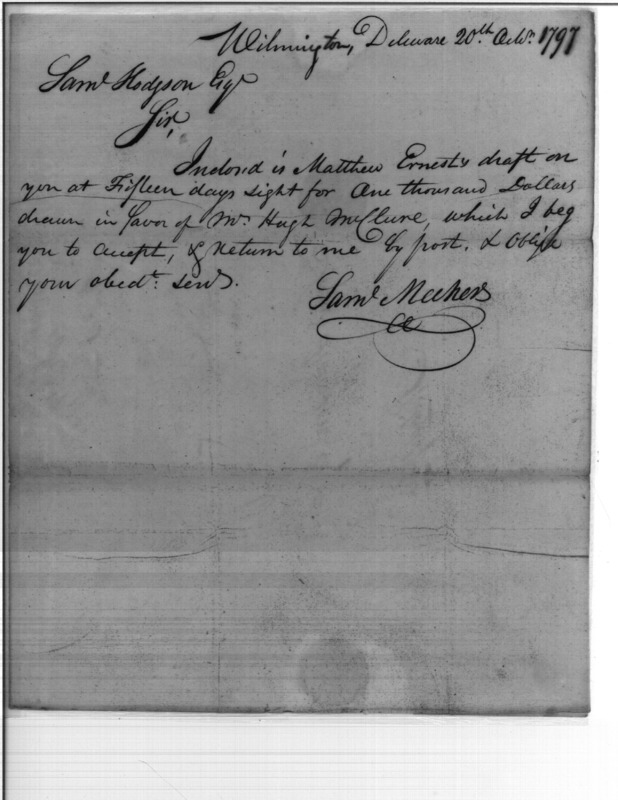 Wilmington, Delaware 20th. Octor. 1797
Saml Hodgson Esqr
Sir,
Inclosd is Matthew Ernest's draft on
you at Fifteen days sight for One thousand Dollars
drawn in favor of Mr. Hugh McClure, which I beg
you to accept, & Return to me by post, & Oblige
your obedt. servt.
Saml Meeker